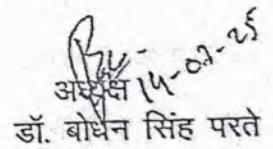 14-07-25
अध्यक्ष
डॉ. बोधन सिंह परते